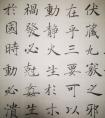 伏藏九竅之邪
在乎三要可以
動靜火生於木
禍發必尅姦生
於國時動必潰